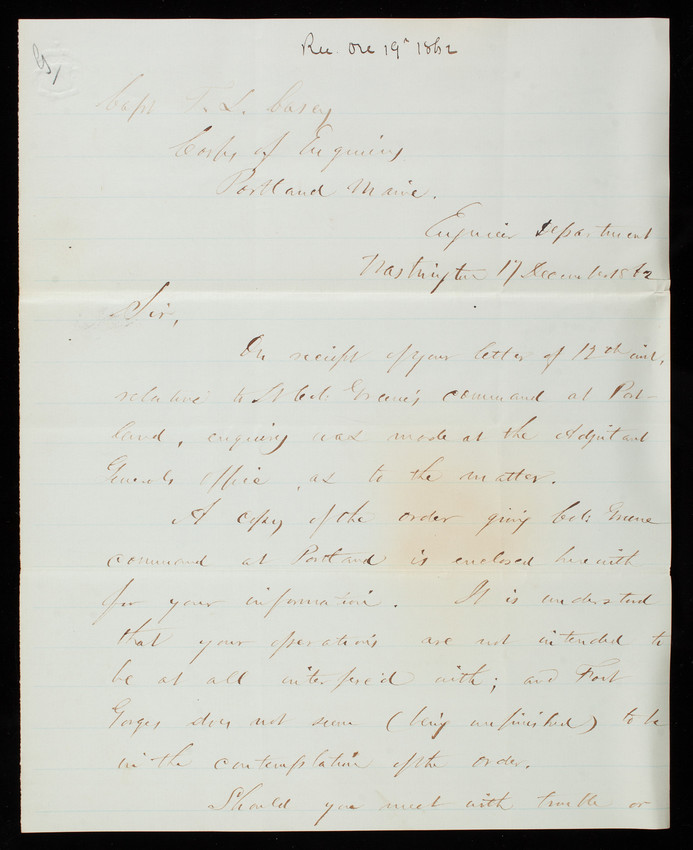 Rec. Dec 19th 1862
Capt T. L. Casey
Corps of Engineers
Portland Maine.
Engineer Department
Washington 17 December 1862
Sir,
On receipt of your letter of 12th inst,
relative to Lt Col: Greene's command at Port-
land, enquiry was made at the Adjutant
Generals Office, as to the matter.
A copy of the order giving Col: Greene
command at Portland is enclosed herewith
for your information. It is understood
that your operations are not intended to
be at all interfered with; and Fort
Gorges does not seem (being unfinished) to be
in the contemplation of the order.
Should you meet with trouble or